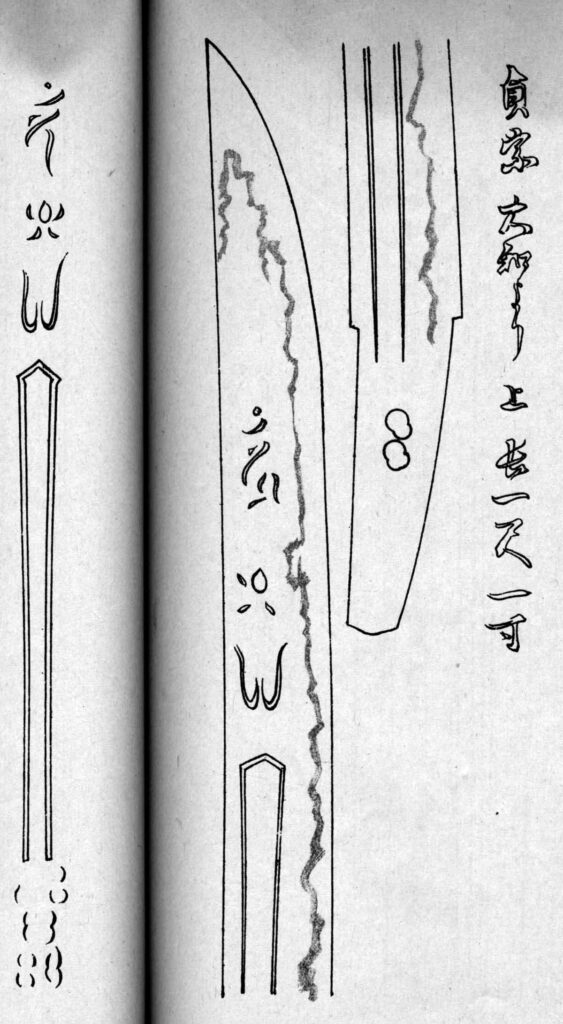 貞宗 大和より 上 長一尺一寸